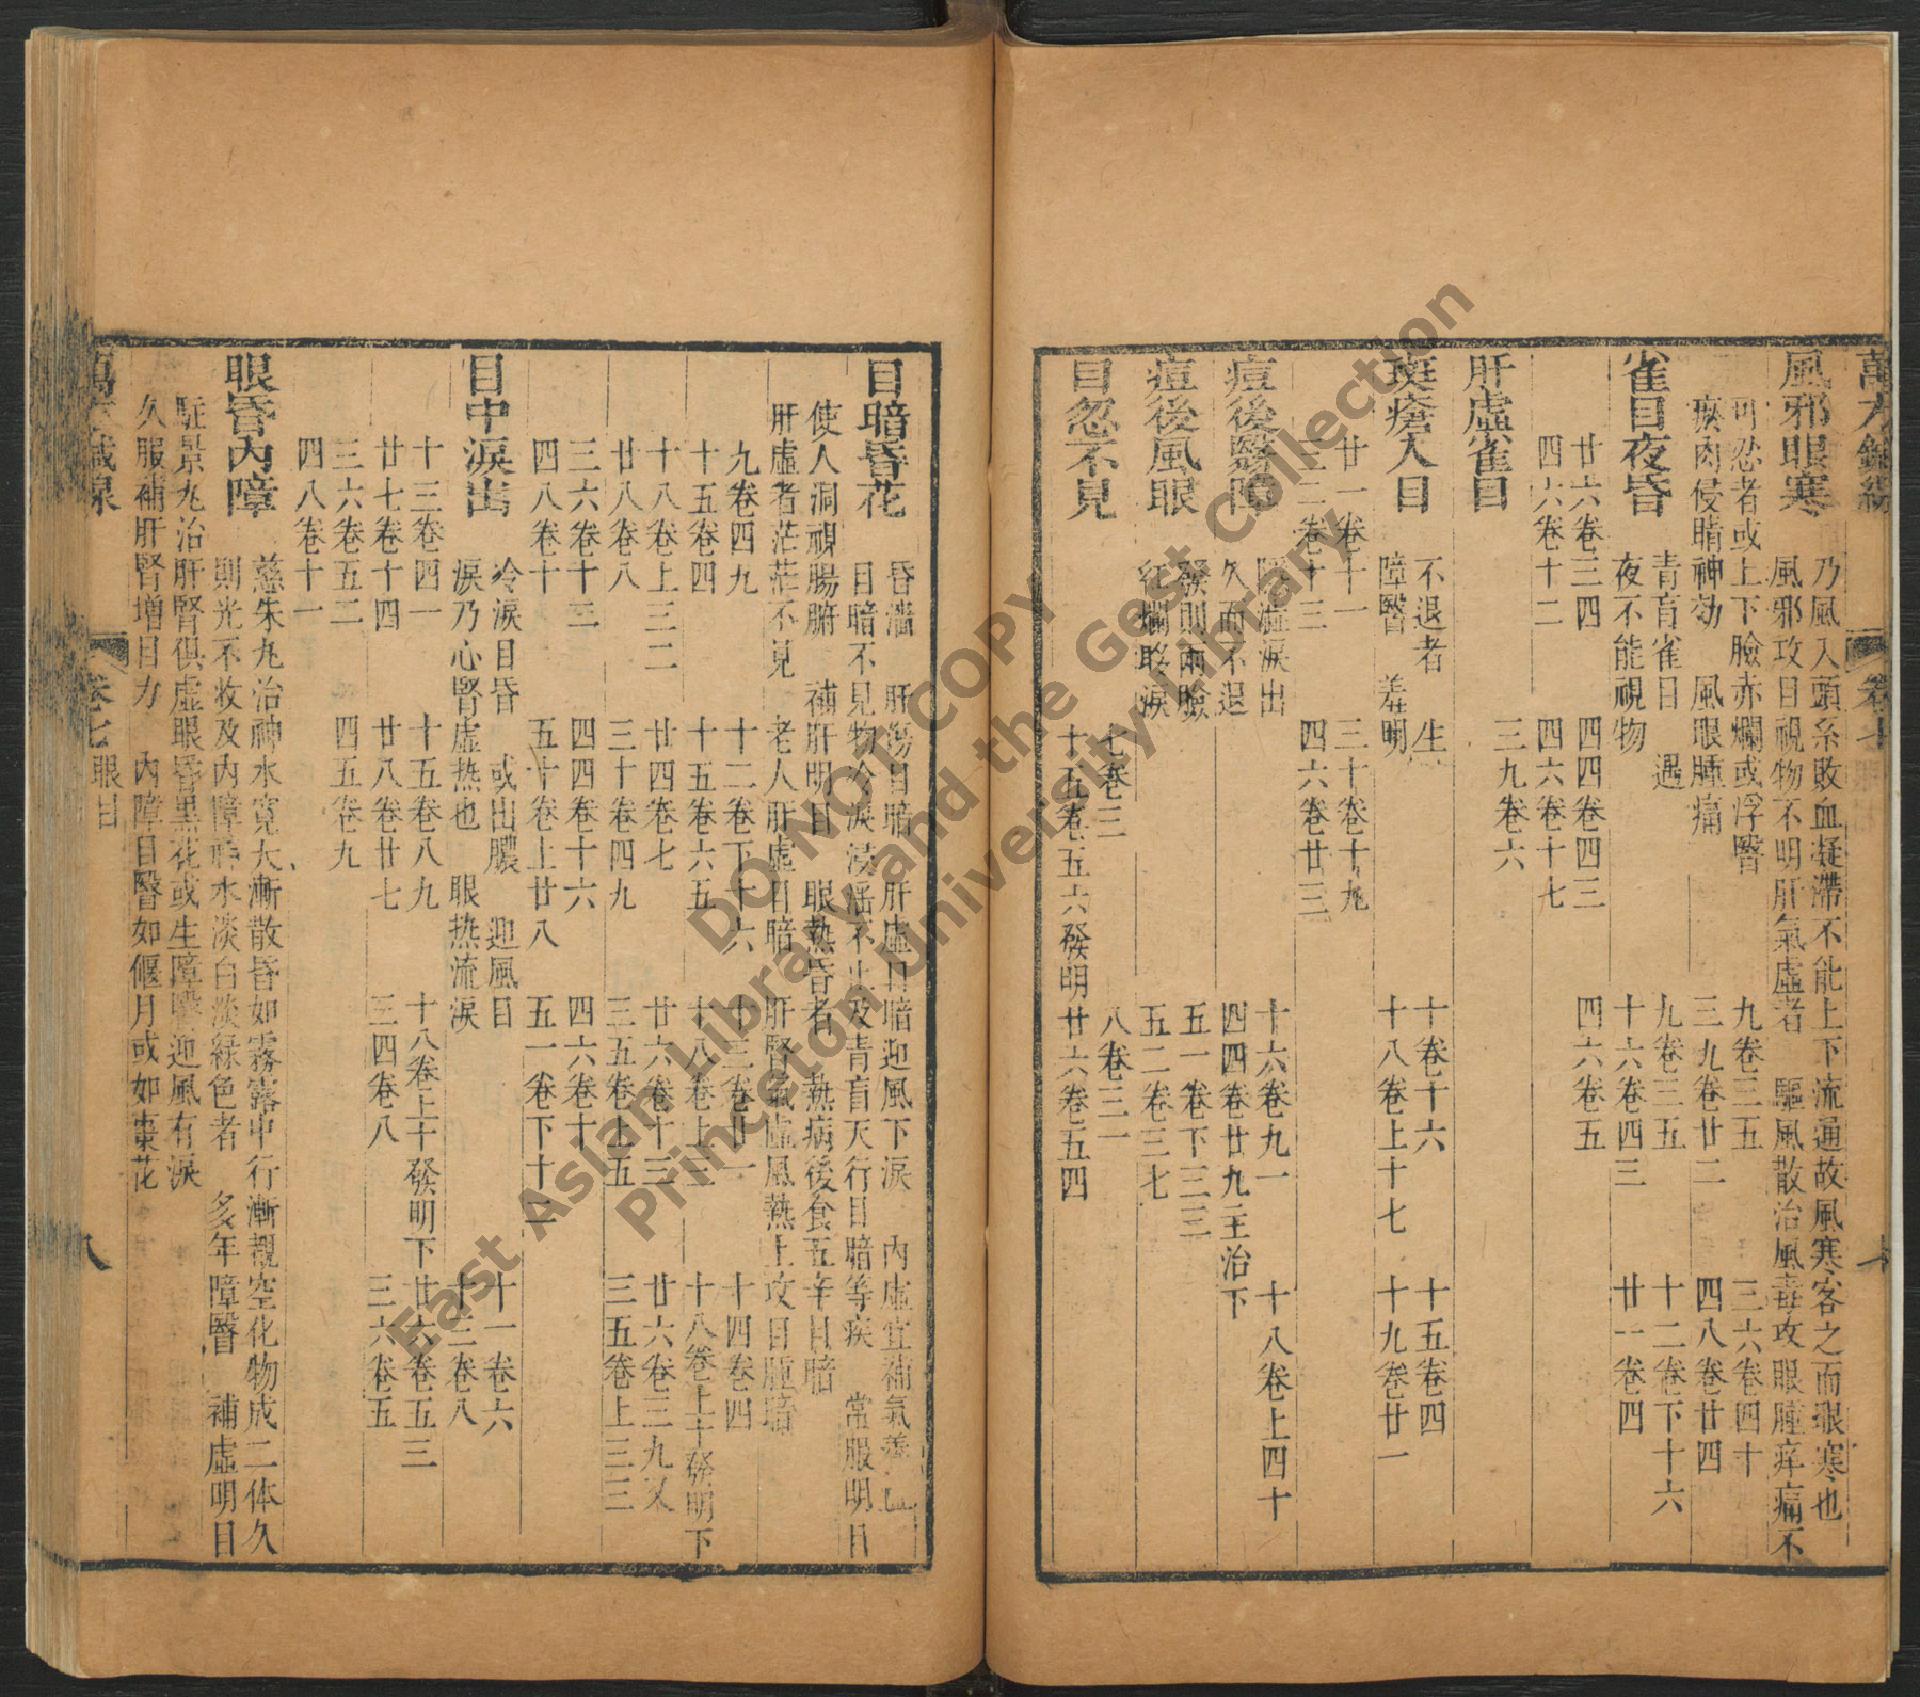 風邪眼寒
乃風入頭系敗血凝滯不能上下流通故風寒客之而眼寒也
風邪攻目視物不明肝氣虛者　驅風散治風毒攻眼腫痒痛不
可忍者或上下瞼赤爛或浮瞖　九卷三五　三六卷四十
瘀肉侵睛神効　風眼腫痛　三九卷廿二　四八卷廿四
雀目夜昏
青肓雀目　遇　九卷三五　十二卷下十六
夜不能視物　十六卷四三　廿一卷四
廿六卷三四　四四卷四三　四六卷五
四六卷十二　四六卷十七
肝虛雀目　三九卷六
斑瘡入目
不退者　生　十卷十六　十五卷四
障瞖　羞明　十八卷上十七　十九卷廿一
廿一卷十一　三十卷十九
二二卷十三　四六卷廿三
痘後瞖障
淚出　十六卷九一　十八卷上四十
久而不退　四四卷廿九主治下
痘後風眼
發則兩瞼　五一卷下三三
紅爛眵淚　五二卷三七
目忽不見
七卷三　八卷三一
十五卷五六發明　廿六卷五四
目暗昏花
昏濇　肝傷目暗　肝虛目暗迎風下淚　內虛宜補氣養
目暗不見物冷淚浸淫不止及青盲天行目暗等疾　常服明目
使人洞視腸腑　補肝明目　眼熱昏者　熱病後食五辛目暗
肝虛者茫茫不見　老人肝虛目暗　肝腎氣虛風熱上攻目腫暗
九卷四九　十二卷下十六　十三卷廿一　十四卷四
十五卷四　十五卷六五　十八卷上三　十八卷上十發明下
十八卷上三二　廿四卷七　廿六卷十三　廿六卷三九又
廿八卷八　三十卷四九　三五卷上五　三五卷上三三
三六卷十三　四四卷十六　四六卷十
四八卷十　五十卷上廿八　五一卷下十二
目中淚出
冷淚目昏　或出膿　迎風目　十一卷六
淚乃心腎虛热也　眼热流淚　十二卷八
十三卷四一　十五卷八九　十八卷上十發明下　廿六卷五三
廿七卷十四　廿八卷廿七　三四卷八　三六卷五
三六卷五二　四五卷九
四八卷十一
眼昏內障
慈朱丸治神水寬大漸散昏如霧露中行漸覩空化物成二体久
則光不收及內障神水淡白淡綠色者　多年障瞖　補虛明目
駐景丸治肝腎俱虛眼昏黑花或生障瞖迎風有淚
久服補肝腎增目力　內障目瞖如偃月或如棗花
卷七　眼目　八